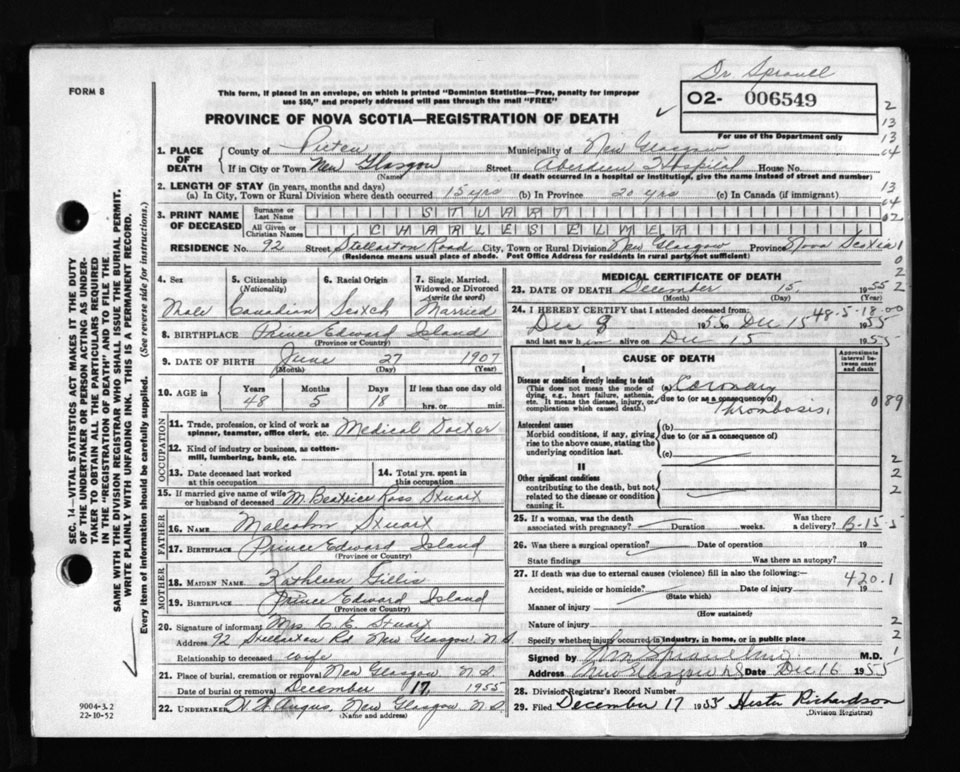 Dr Sproull
FORM 8
This form, if placed in an envelope, on which is printed "Dominion Statistics—Free, penalty for improper
use $50," and properly addressed will pass through the mail "FREE"
02- 006549
For use of the Department only
PROVINCE OF NOVA SCOTIA—REGISTRATION OF DEATH
2
13
13
64
13
64
02
1
0
2
2
1. PLACE OF DEATH County of Pictou Municipality of New Glasgow
If in City or Town New Glasgow Street Aberdeen Hospital House No.
(Name) (If death occurred in a hospital or institution, give the name instead of street and number)
2. LENGTH OF STAY (in years, months and days)
(a) In City, Town or Rural Division where death occurred 15 yrs (b) In Province 20 yrs (c) In Canada (if immigrant)
3. PRINT NAME OF DECEASED Surname or Last Name STUART
All Given or Christian Names CHARLES ELMER
RESIDENCE No. 92 Street Stellarton Road City, Town or Rural Division New Glasgow Province Nova Scotia
(Residence means usual place of abode. Post Office Address for residents in rural parts not sufficient)
4. Sex 5. Citizenship (Nationality) 6. Racial Origin 7. Single, Married, Widowed or Divorced (write the word)
Male Canadian Scotch Married
8. BIRTHPLACE Prince Edward Island
(Province or Country)
9. DATE OF BIRTH June 27 1907
(Month) (Day) (Year)
10. AGE in Years Months Days If less than one day old
48 5 18 hrs. or min.
OCCUPATION
11. Trade, profession or kind of work as spinner, teamster, office clerk, etc. Medical Doctor
12. Kind of industry or business, as cotton-mill, lumbering, bank, etc.
13. Date deceased last worked at this occupation 14. Total yrs. spent in this occupation
15. If married give name of wife or husband of deceased M. Beatrice Ross Stuart
FATHER
16. NAME Malcolm Stuart
17. BIRTHPLACE Prince Edward Island
(Province or Country)
MOTHER
18. MAIDEN NAME Kathleen Gillis
19. BIRTHPLACE Prince Edward Island
(Province or Country)
20. Signature of informant Mrs C. E. Stuart
Address 92 Stellarton Rd New Glasgow, N.S.
Relationship to deceased wife
21. Place of burial, cremation or removal New Glasgow N.S.
Date of burial or removal December 17, 1955
22. UNDERTAKER Angus, New Glasgow, N.S.
(Name and address)
MEDICAL CERTIFICATE OF DEATH
23. DATE OF DEATH December 15, 1955
(Month) (Day) (Year)
48-5-18-00
24. I HEREBY CERTIFY that I attended deceased from:
Dec 8 1955 to Dec 15 1955
and last saw him alive on Dec 15 1955
CAUSE OF DEATH
Approximate interval between onset and death
I
Disease or condition directly leading to death
(This does not mean the mode of dying, e.g., heart failure, asthenia, etc. It means the disease, injury, or complication which caused death.)
(a) Coronary
due to (or as a consequence of)
Thrombosis.
089
Antecedent causes
Morbid conditions, if any, giving rise to the above cause, stating the underlying condition last.
(b)
due to (or as a consequence of)
(c)
II
Other significant conditions
contributing to the death, but not related to the disease or condition causing it.
2
2
2
25. If a woman, was the death associated with pregnancy? Duration weeks. Was there a delivery?
B-15-5
26. Was there a surgical operation? Date of operation 19
State findings Was there an autopsy?
27. If death was due to external causes (violence) fill in also the following:—
420.1
Accident, suicide or homicide? Date of injury 19
(State which)
Manner of injury
(How sustained)
Nature of injury
2
Specify whether injury occurred in industry, in home, or in public place
2
Signed by Wm Sproull M.D. 1
Address New Glasgow NS Date Dec 16 1955
28. Division Registrar's Record Number
29. Filed December 17 1955 Hester Richardson
(Division Registrar)
SEC. 14—VITAL STATISTICS ACT MAKES IT THE DUTY
OF THE UNDERTAKER OR PERSON ACTING AS UNDER-
TAKER TO OBTAIN ALL THE PARTICULARS REQUIRED
IN THE "REGISTRATION OF DEATH" AND TO FILE THE
SAME WITH THE DIVISION REGISTRAR WHO SHALL ISSUE THE BURIAL PERMIT.
WRITE PLAINLY WITH UNFADING INK. THIS IS A PERMANENT RECORD.
Every item of information should be carefully supplied. (See reverse side for instructions.)
9004-3.2
22-10-52